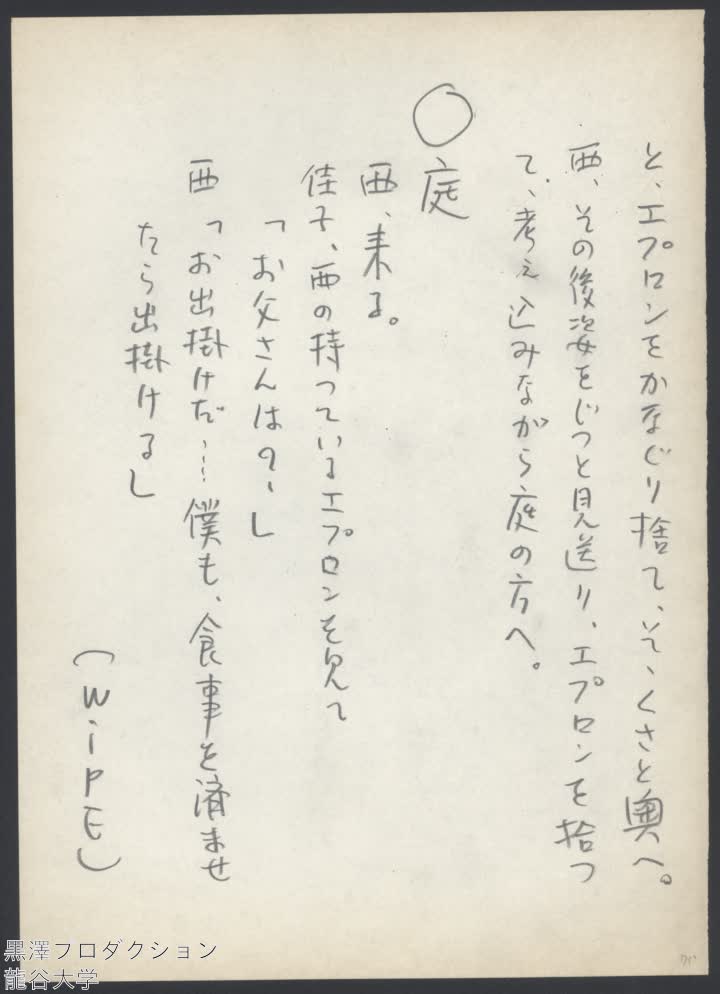 と、エプロンをかなぐり捨て、そゝくさと奥へ。
西、その後姿をじっと見送り、エプロンを拾っ
て、考え込みながら庭の方へ。
○庭
西、来る。
佳子、西の持っているエプロンを見て
「お父さんは？」
西「お出掛けだ……僕も、食事を済ませ
たら出掛ける」
(WiPE)
黒澤プロダクション
龍谷大学